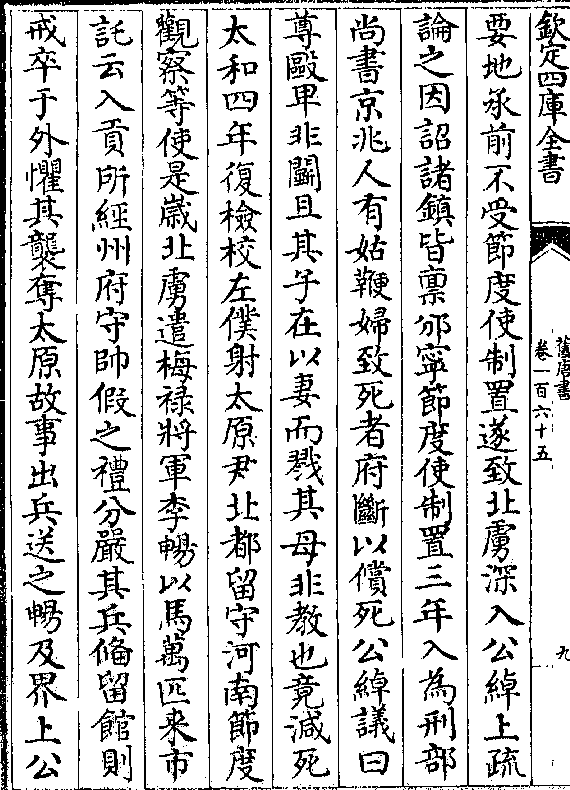 欽定四庫全書
舊唐書
卷一百六十五
九
要地承前不受節度使制置遂致北虜深入公綽上疏
論之因詔諸鎮皆禀邠寧節度使制置三年入為刑部
尚書京兆人有姑鞭婦致死者府斷以償死公綽議曰
尊毆卑非鬬且其子在以妻而戮其母非教也竟減死
太和四年復檢校左僕射太原尹北都留守河南節度
觀察等使是歲北虜遣梅祿將軍李暢以馬萬匹来市
託云入貢所經州府守帥假之禮分嚴其兵備留館則
戒卒于外懼其襲奪太原故事出兵送之暢及界上公